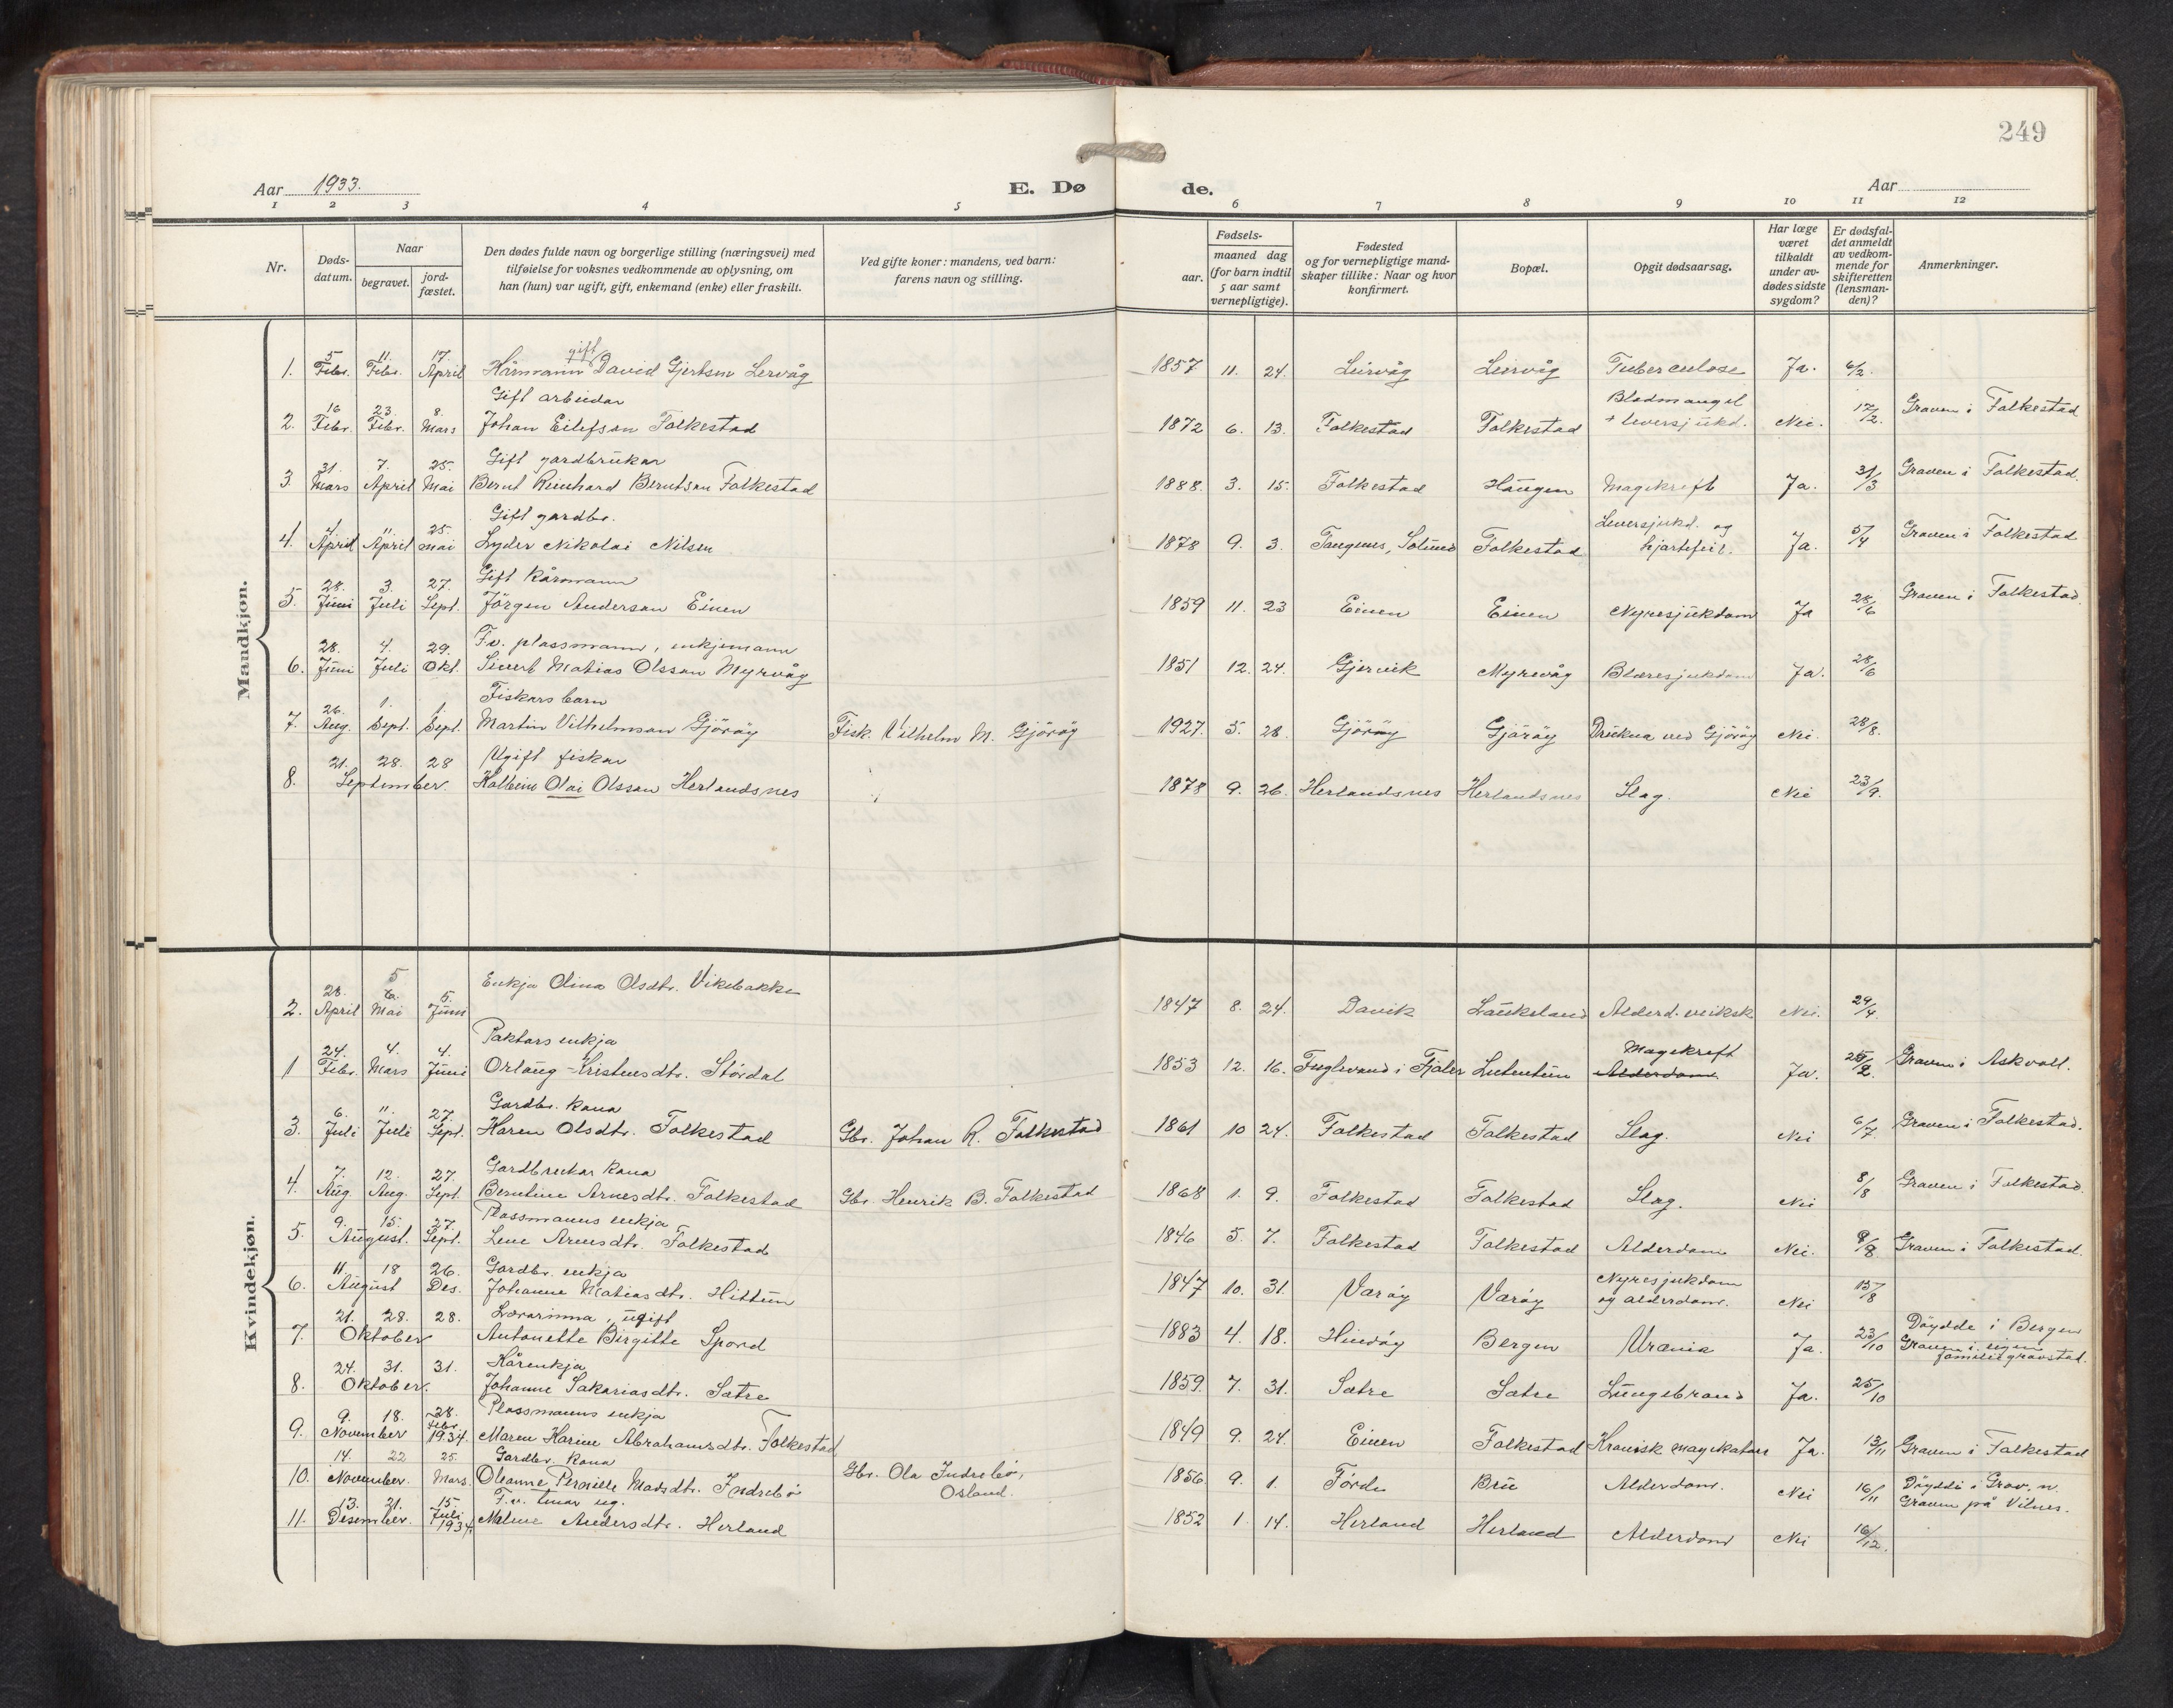 249
Aar 1933.
E. Dø
de.
Aar
1 2 3 4 5 6 7 8 9 10 11 12
Nr.
Døds-
datum.
Naar
begravet.
jord-
fæstet.
Den dødes fulde navn og borgerlige stilling (næringsvei) med
tilføielse for voksnes vedkommende av oplysning, om
han (hun) var ugift, gift, enkemand (enke) eller fraskilt.
Ved gifte koner: mandens, ved barn:
farens navn og stilling.
Fødsels-
aar.
maaned dag
(for barn indtil
5 aar samt
vernepligtige).
Fødested
og for vernepligtige mand-
skaper tillike: Naar og hvor
konfirmert.
Bopæl.
Opgit dødsaarsag.
Har læge
været
tilkaldt
under av-
dødes sidste
sygdom?
Er dødsfal-
det anmeldt
av vedkom-
mende for
skifteretten
(lensman-
den)?
Anmerkninger.
Mandkjøn.
5 11. 17. gift
1. Febr. Febr. April Kårmann David Gjertsen Lervåg 1857 11. 24. Leirvåg Leirvåg Tuberculose Ja. 6/2.
16 23. 8. Gift arbeidar Blodmangel
2. Febr. Febr. Mars Johan Eilefson Folkestad 1872 6. 13. Folkestad Folkestad + leversjukd. Nei. 17/2. Graven i Folkestad
31. 7. 25. Gift gardbrukar
3. Mars April Mai Bernt Reinhard Berntson Folkestad 1888. 3. 15. Folkestad Haugen Magekreft Ja. 31/3 Graven i Folkestad.
4 11. 25. Gift gardbr. Leversjukd. og
4. April April Mai Lyder Nikolai Nilsen 1878 9. 3. Tangenes, Solund Folkestad hjartefeil. Ja. 5/4 Graven i Folkestad
28. 3. 27. Gift kårmann
5. Juni Juli Sept. Jörgen Anderson Einen 1859 11. 23 Einen Einen Nyresjukdom Ja 28/6 Graven i Folkestad.
28. 4. 29. F.v. plassmann, enkjemann
6. Juni Juli Okt. Sivert Matias Olsson Myrvåg 1851 12. 24. Gjervik Myrevåg Blæresjukdom Ja. 28/6
26. 1. 1. Fiskars barn
7. Aug. Sept. Sept. Martin Vilhelmson Gjöröy Fisk. Vilhelm M. Gjöröy 1927. 5. 28. Gjöröy Gjöröy Drukna ved Gjöröy Nei. 28/8.
21. 28. 28 Ugift fiskar
8. September. Kolbein Olai Olsson Herlandsnes 1878 9. 26. Herlandsnes Herlandsnes Slag. Nei 23/9.
Kvindekjøn.
28. 5 5. Enkja Olina Olsdtr. Vikebakke
2. April Mai Juni 1847 8. 24. Davik Laukeland Alderd.veiksk Nei. 29/4.
24. 4. 4. Paktars enkja Magekreft
1 Febr. Mars Juni Orlaug Kristensdtr. Stördal 1853 12. 16. Fuglevand i Fjaler Lutentun Alderdom Ja. 25/2. Graven i Askvoll.
6. 11. 27. Gardbr. kona
3. Juli Juli Sept. Karen Olsdtr. Folkestad Gbr. Johan R. Folkestad 1861 10 24. Folkestad Folkestad Slag. Nei 6/7 Graven i Folkestad.
7. 12. 27. Gardbrukar kona
4. Aug. Aug. Sept. Berntine Arnesdtr. Folkestad Gbr. Henrik B. Folkestad 1868 1. 9. Folkestad Folkestad Slag. Nei 8/8 Graven i Folkestad.
9. 15. 27. Plassmanns enkja
5. August. Sept. Lene Arnesdtr. Folkestad 1846 5. 7. Folkestad Folkestad Alderdom Nei. 9/8 Graven i Folkestad.
11. 18 26. Gardbr. enkja Nyresjukdom
6. August Des. Johanne Matiasdtr. Hittun 1847 10. 31. Varöy Varöy og alderdom. Nei 15/8
21. 28. 28. Lærarinna, ugift Döydde i Bergen
7. Oktober Antonette Birgitte Spord 1883 4. 18. Hindöy Bergen Uræmia Ja. 23/10 Graven i eigen
familiegravstad.
24. 31. 31. Kårenkja
8. Oktober. Johanne Sakariasdtr. Sætre 1859 7. 31. Sætre Sætre Lungebrand Ja. 25/10
9. 18. 28. Febr. Plassmanns enkja
9. November 1934. Maren Karine Abrahamsdtr. Folkestad 1849 9. 24. Einen Folkestad Kronisk magekatarr Ja. 13/11 Graven i Folkestad
14. 22 25. Gardbr. kona Gbr. Ola Indrebö,
10. November. Mars. Oleanne Pernille Madsdtr. Indrebö Osland. 1856 9. 1. Förde Brü Alderdom. Nei 16/11 Döydde i Grov, n.
Graven på Vilnes.
13. 21. 15. Juli F.v. tenar ug.
11. Desember. 1934 Malene Andersdtr. Herland 1852 1. 14. Herland Herland Alderdom Nei 16/12.